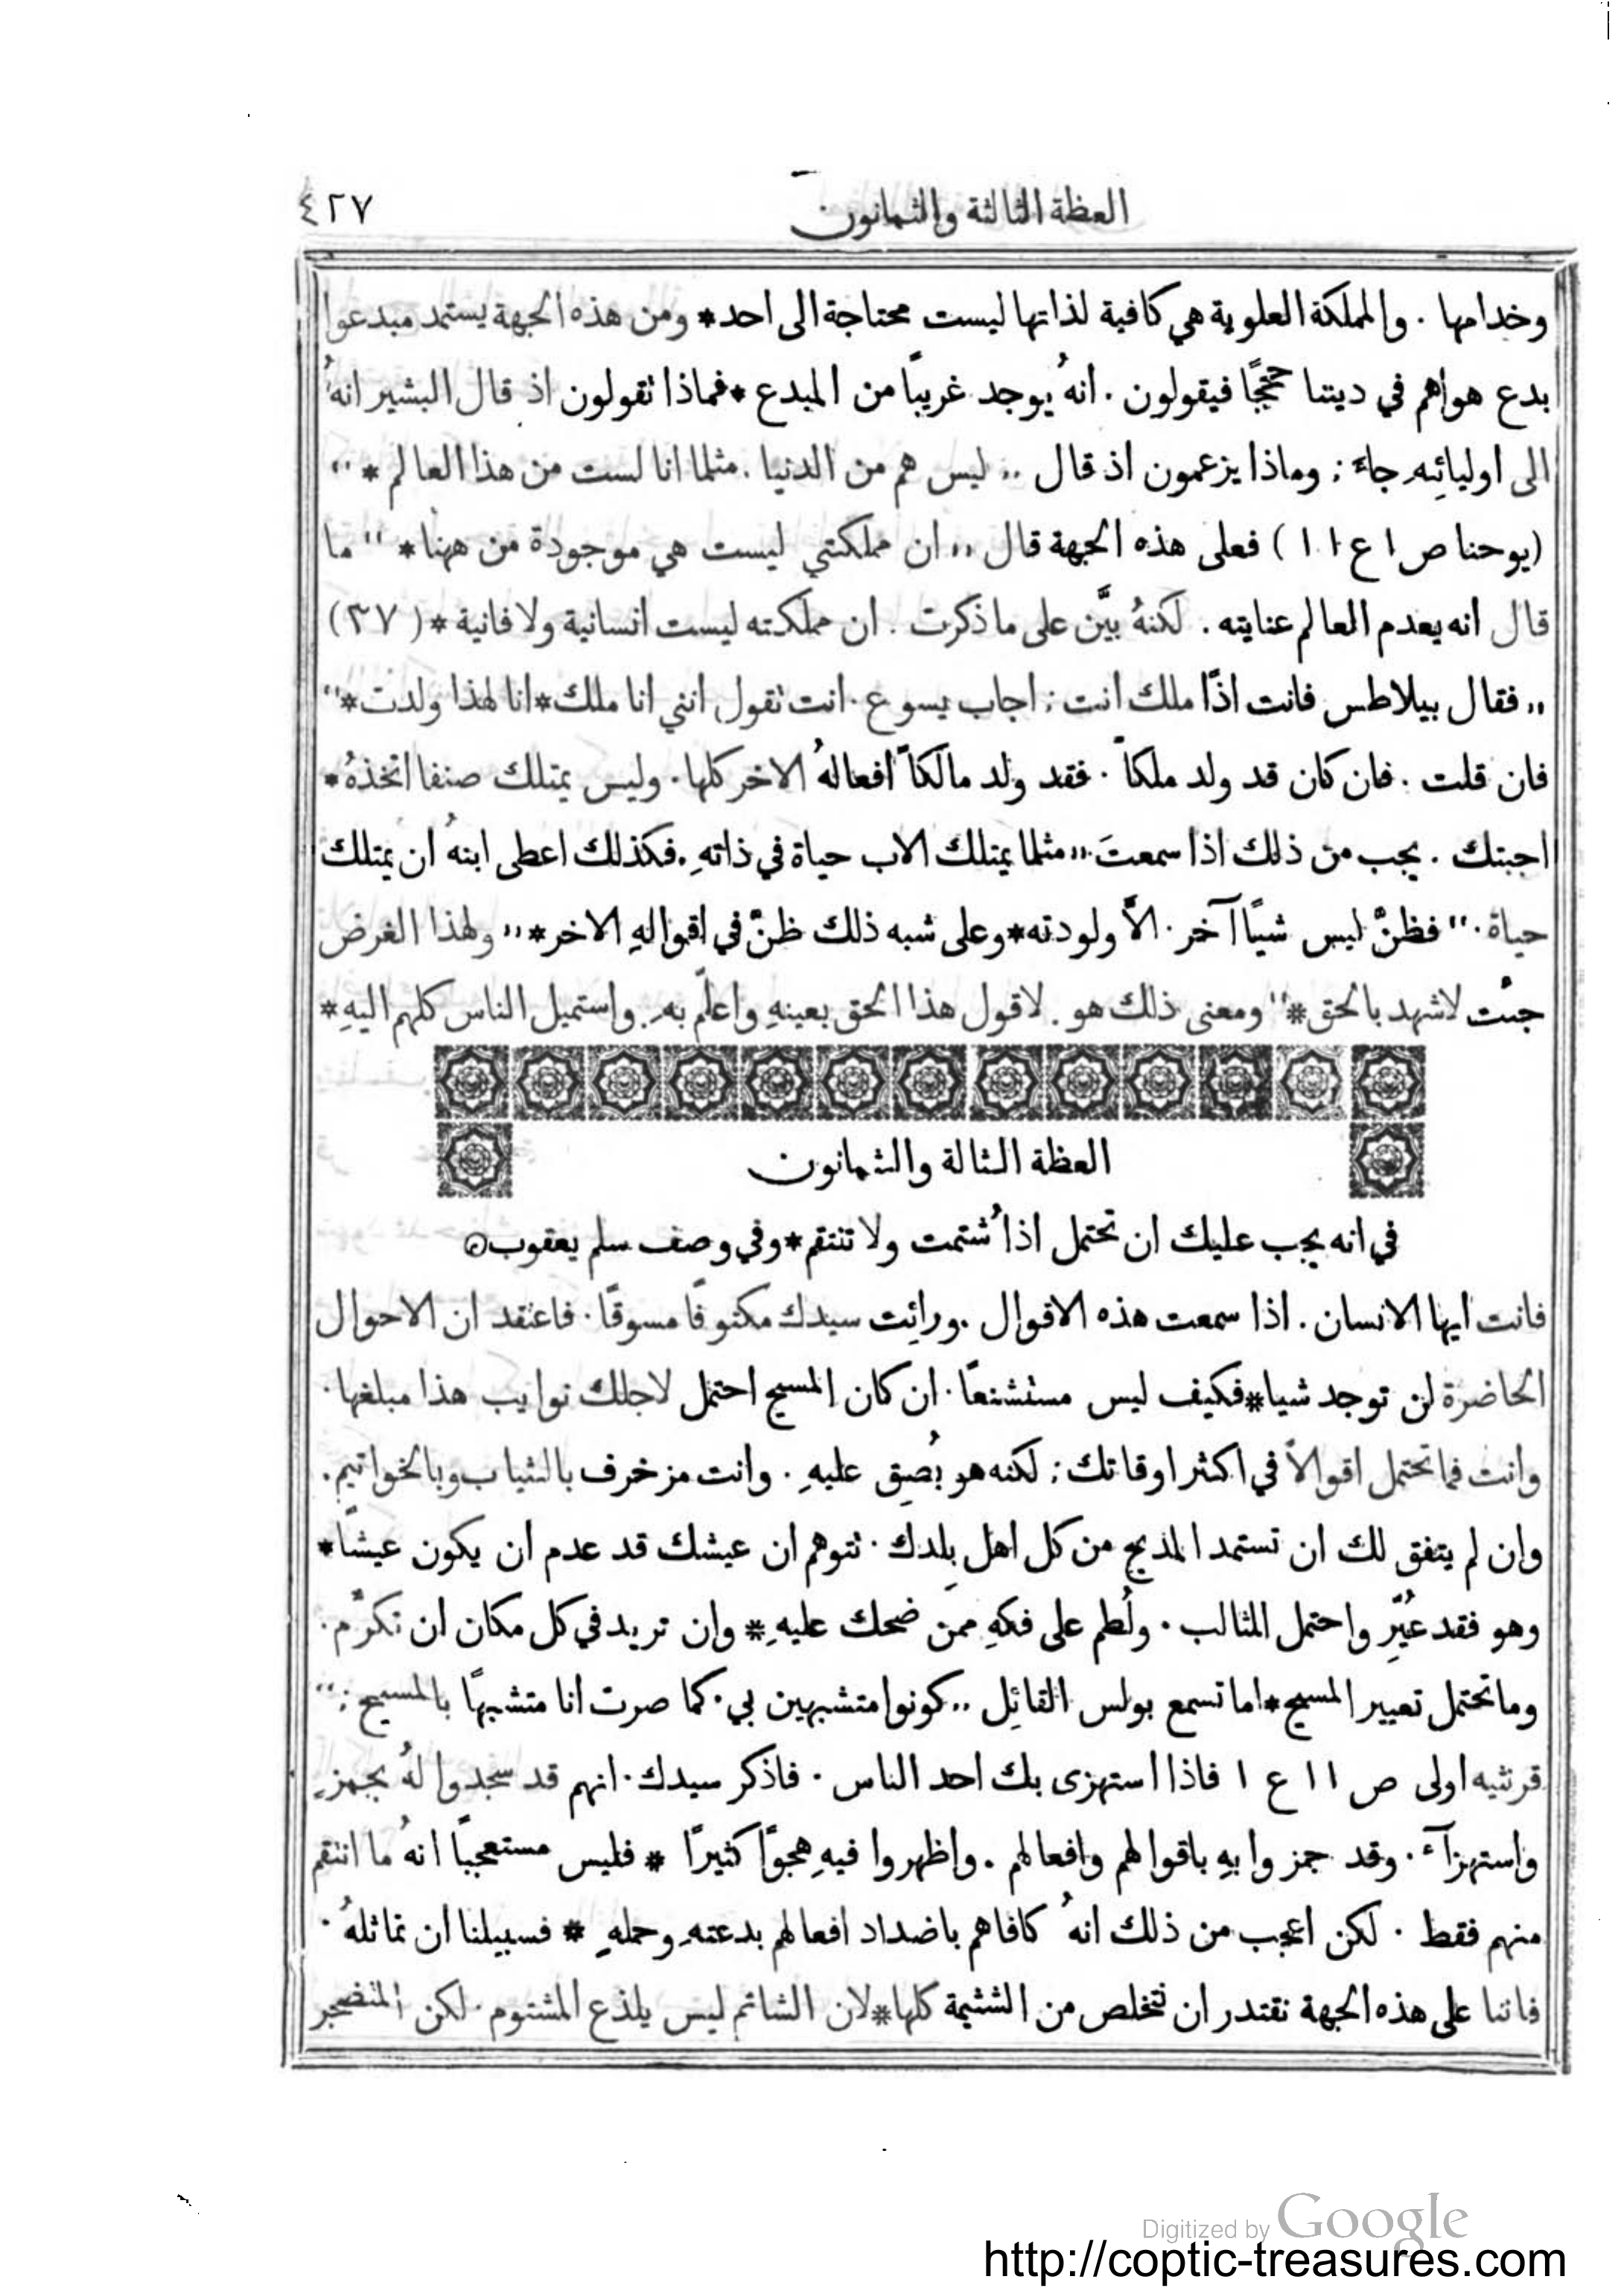 العظة الثالثة والثمانون ٤٢٧
وخدامها . والمملكة العلوية هي كافية لذاتها ليست محتاجة الى احد* ومن هذه الجهة يستمد مبدعوا
بدع هواهم في ديننا حججًا فيقولون . انهُ يوجد غريبًا من المبدع *فماذا تقولون اذ قال البشير انهُ
الى اوليائِهِ جاءَ ; وماذا يزعمون اذ قال ,, ليس هم من الدنيا . مثلما انا لست من هذا العالم *"
(يوحنا ص١ ع١١) فعلى هذه الجهة قال ,, ان مملكتي ليست هي موجودة من ههنا* " ما
قال انه يعدم العالم عنايته . لكنهُ بيَّن على ما ذكرت . ان مملكته ليست انسانية ولا فانية * (٣٧)
,, فقال بيلاطس فانت اذًا ملك انت ; اجاب يسوع . انت تقول انني انا ملك*انا لهذا ولدت*"
فان قلت . فان كان قد ولد ملكًا . فقد ولد مالكًا افعالهُ الاخر كلها . وليس يمتلك صنفا اتخذهُ *
اجبتك . يجب من ذلك اذا سمعتَ ,, مثلما يمتلك الاب حياة في ذاتهِ . فكذلك اعطى ابنهُ ان يمتلك
حياة . " فظنَّ ليس شيًا آخر . الَّا ولودته*وعلى شبه ذلك ظنَّ في اقوالهِ الاخر* ,, ولهذا الغرض
جئت لاشهد بالحق *" ومعنى ذلك هو . لاقول هذا الحق بعينهِ واعلّم بهِ . واستميل الناس كلهم اليهِ *
العظة الثالة والثمانون
في انه يجب عليك ان تحتمل اذا شُتمت ولا تنتقم *وفي وصف سلم يعقوب
فانت ايها الانسان . اذا سمعت هذه الاقوال . ورائت سيدك مكتوفًا مسوقًا . فاعتقد ان الاحوال
الحاضرة لن توجد شيا*فكيف ليس مستشنعًا . ان كان المسيح احتمل لاجلك نوايب هذا مبلغها .
وانت فما تحتمل اقوالًا في اكثر اوقاتك ; لكنه هو بُصِق عليهِ . وانت مزخرف بالثياب وبالخواتيم .
وان لم يتفق لك ان تستمد المديح من كل اهل بلدك . تتوهم ان عيشك قد عدم ان يكون عيشًا*
وهو فقد عُيِّر واحتمل المثالب . ولُطم على فكهِ ممن ضحك عليهِ * وان تريد في كل مكان ان تكرَّم .
وما تحتمل تعيير المسيح *اما تسمع بولس القائِل ,, كونوا متشبهين بي . كما صرت انا متشبهًا بالمسيح ; "
قرنثيه اولى ص ١١ ع ١ فاذا استهزى بك احد الناس . فاذكر سيدك . انهم قد سجدوا لهُ بجمزٍ
واستهزآءٍ . وقد جمزوا بهِ باقوالهم وافعالهم . واظهروا فيهِ هجوًا كثيرًا * فليس مستعجبًا انهُ ما انتقم
منهم فقط . لكن اعجب من ذلك انهُ كافاهم باضداد افعالهم بدعتهِ وحلمهِ * فسبيلنا ان نماثلهُ .
فاننا على هذه الجهة نقتدر ان نتخلص من الشتيمة كلها*لان الشاتم ليس يلذع المشتوم . لكن المتضجر
Digitized by Google
http://coptic-treasures.com